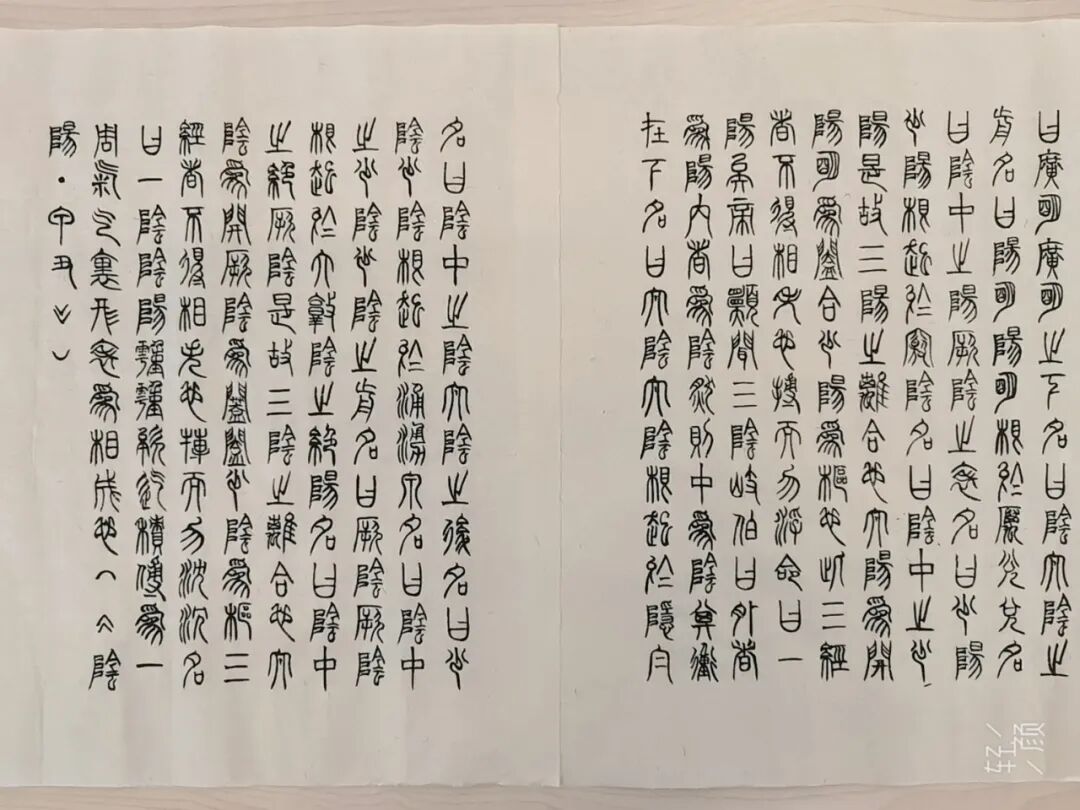 曰廣明廣明之下名曰陰太陰之
前名曰陽明陽明根於厲兌兌名
曰陰中之陽厥陰之表名曰少陽
少陽根起於竅陰名曰陰中之少
陽是故三陽之離合也太陽為開
陽明為闔合少陽為樞也此三經
者不得相失也摶而勿浮命曰一
陽黃帝曰願聞三陰岐伯曰外者
為陽內者為陰然則中為陰其衝
在下名曰太陰太陰根起於隱白
名曰陰中之陰太陰之後名曰少
陰少陰根起於涌湧泉名曰陰中
之少陰少陰之前名曰厥陰厥陰
根起於大敦陰之絕陽名曰陰中
之絕厥陰是故三陰之離合也太
陰為開厥陰為闔闔少陰為樞三
經者不得相失也摶而勿沈沉名
曰一陰陰陽積傳為一
周氣裏形表為相成也陰
陽
轻颜